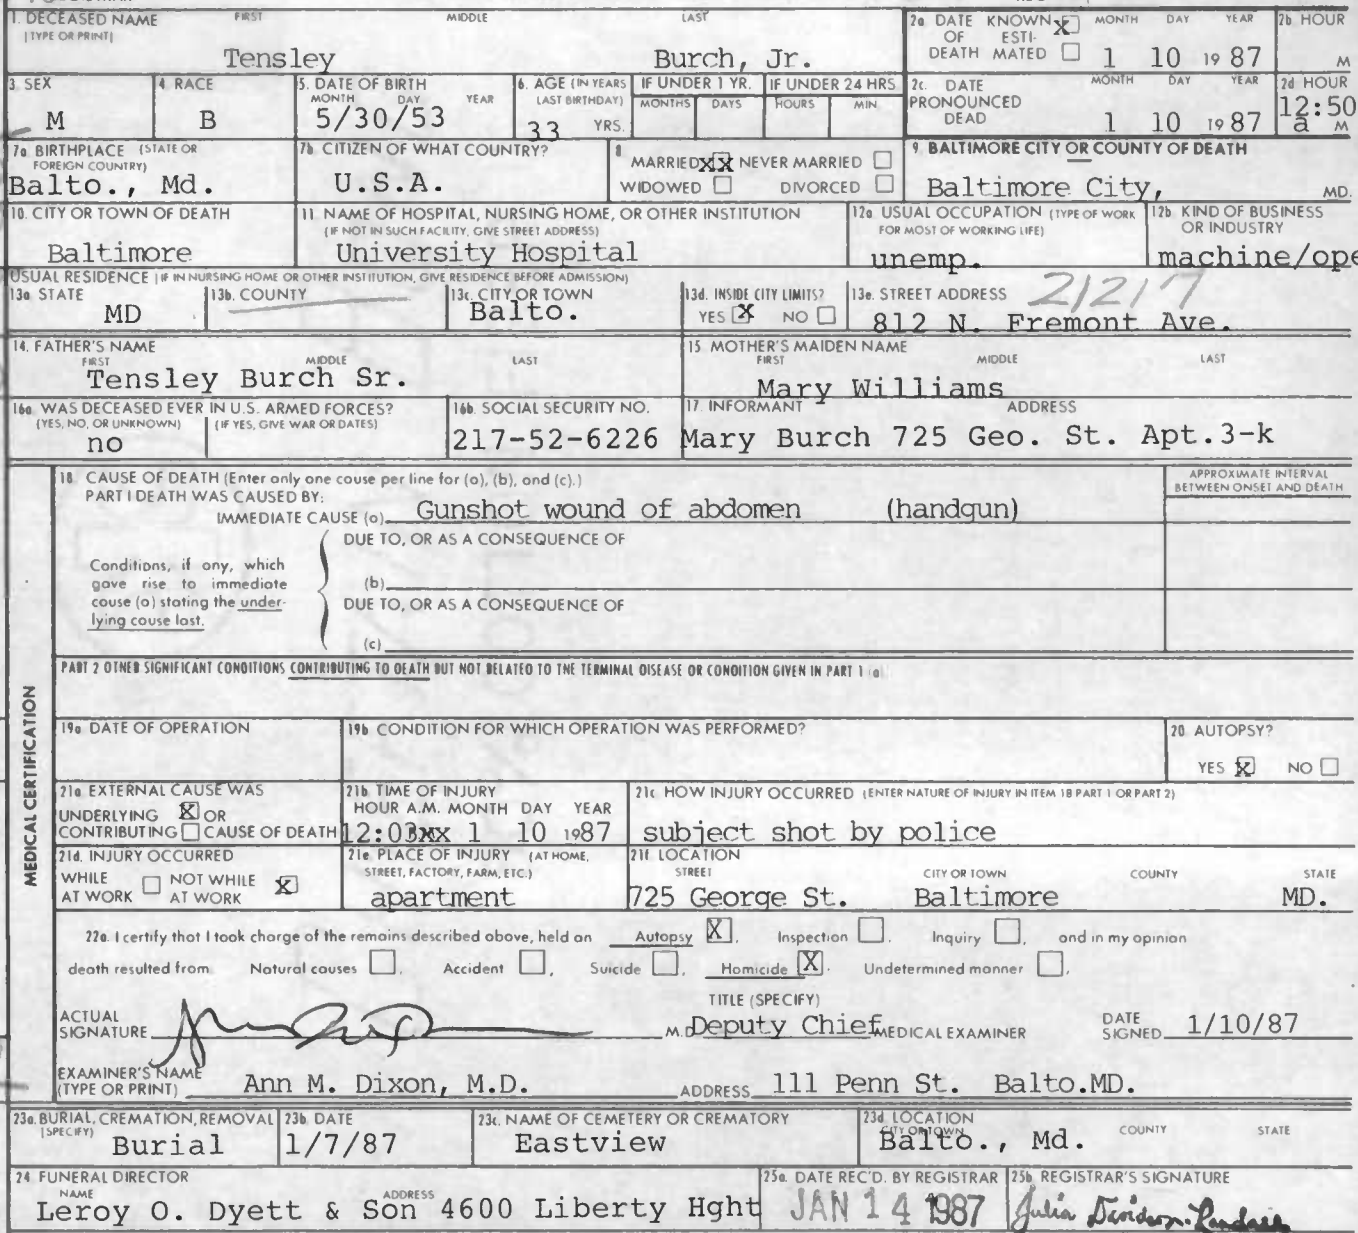 1. DECEASED NAME FIRST MIDDLE LAST
(TYPE OR PRINT)
Tensley Burch, Jr.
2a DATE KNOWN X MONTH DAY YEAR
OF ESTI-
DEATH MATED 1 10 1987
2b HOUR
M
3 SEX
M
4 RACE
B
5. DATE OF BIRTH
MONTH DAY YEAR
5/30/53
6. AGE (IN YEARS
LAST BIRTHDAY)
33 YRS.
IF UNDER 1 YR.
MONTHS DAYS
IF UNDER 24 HRS
HOURS MIN
2c. DATE MONTH DAY YEAR
PRONOUNCED
DEAD 1 10 1987
2d HOUR
12:50
a M
7a BIRTHPLACE (STATE OR
FOREIGN COUNTRY)
Balto., Md.
7b CITIZEN OF WHAT COUNTRY?
U.S.A.
8
MARRIED XX NEVER MARRIED
WIDOWED DIVORCED
9 BALTIMORE CITY OR COUNTY OF DEATH
Baltimore City, MD.
10. CITY OR TOWN OF DEATH
Baltimore
11 NAME OF HOSPITAL, NURSING HOME, OR OTHER INSTITUTION
(IF NOT IN SUCH FACILITY, GIVE STREET ADDRESS)
University Hospital
12a USUAL OCCUPATION (TYPE OF WORK
FOR MOST OF WORKING LIFE)
unemp.
12b KIND OF BUSINESS
OR INDUSTRY
machine/ope
USUAL RESIDENCE (IF IN NURSING HOME OR OTHER INSTITUTION, GIVE RESIDENCE BEFORE ADMISSION)
13a STATE
MD
13b. COUNTY
13c. CITY OR TOWN
Balto.
13d. INSIDE CITY LIMITS?
YES X NO
13e. STREET ADDRESS 21217
812 N. Fremont Ave.
14. FATHER'S NAME
FIRST MIDDLE LAST
Tensley Burch Sr.
15 MOTHER'S MAIDEN NAME
FIRST MIDDLE LAST
Mary Williams
16a WAS DECEASED EVER IN U.S. ARMED FORCES?
(YES, NO, OR UNKNOWN) (IF YES, GIVE WAR OR DATES)
no
16b. SOCIAL SECURITY NO.
217-52-6226
17. INFORMANT ADDRESS
Mary Burch 725 Geo. St. Apt.3-k
MEDICAL CERTIFICATION
18 CAUSE OF DEATH (Enter only one cause per line for (a), (b), and (c).)
PART I DEATH WAS CAUSED BY:
IMMEDIATE CAUSE (a) Gunshot wound of abdomen (handgun)
APPROXIMATE INTERVAL
BETWEEN ONSET AND DEATH
DUE TO, OR AS A CONSEQUENCE OF
Conditions, if any, which
gave rise to immediate
cause (a) stating the under-
lying cause last.
(b)
DUE TO, OR AS A CONSEQUENCE OF
(c)
PART 2 OTHER SIGNIFICANT CONDITIONS CONTRIBUTING TO DEATH BUT NOT RELATED TO THE TERMINAL DISEASE OR CONDITION GIVEN IN PART 1 (a)
19a DATE OF OPERATION
19b CONDITION FOR WHICH OPERATION WAS PERFORMED?
20 AUTOPSY?
YES X NO
21a EXTERNAL CAUSE WAS
UNDERLYING X OR
CONTRIBUTING CAUSE OF DEATH
21b TIME OF INJURY
HOUR A.M. MONTH DAY YEAR
12:03xx 1 10 1987
21c HOW INJURY OCCURRED (ENTER NATURE OF INJURY IN ITEM 18 PART 1 OR PART 2)
subject shot by police
21d. INJURY OCCURRED
WHILE NOT WHILE X
AT WORK AT WORK
21e PLACE OF INJURY (AT HOME,
STREET, FACTORY, FARM, ETC.)
apartment
21f LOCATION
STREET CITY OR TOWN COUNTY STATE
725 George St. Baltimore MD.
22a. I certify that I took charge of the remains described above, held an Autopsy X, Inspection , Inquiry , and in my opinion
death resulted from Natural causes , Accident , Suicide , Homicide X. Undetermined manner ,
ACTUAL
SIGNATURE
TITLE (SPECIFY)
M.D Deputy Chief MEDICAL EXAMINER
DATE
SIGNED 1/10/87
EXAMINER'S NAME
(TYPE OR PRINT) Ann M. Dixon, M.D. ADDRESS 111 Penn St. Balto.MD.
23a. BURIAL, CREMATION, REMOVAL
(SPECIFY)
Burial
23b. DATE
1/7/87
23c. NAME OF CEMETERY OR CREMATORY
Eastview
23d. LOCATION
CITY OR TOWN COUNTY STATE
Balto., Md.
24 FUNERAL DIRECTOR
NAME ADDRESS
Leroy O. Dyett & Son 4600 Liberty Hght
25a. DATE REC'D. BY REGISTRAR
JAN 14 1987
25b. REGISTRAR'S SIGNATURE
Julia Davidson-Randall